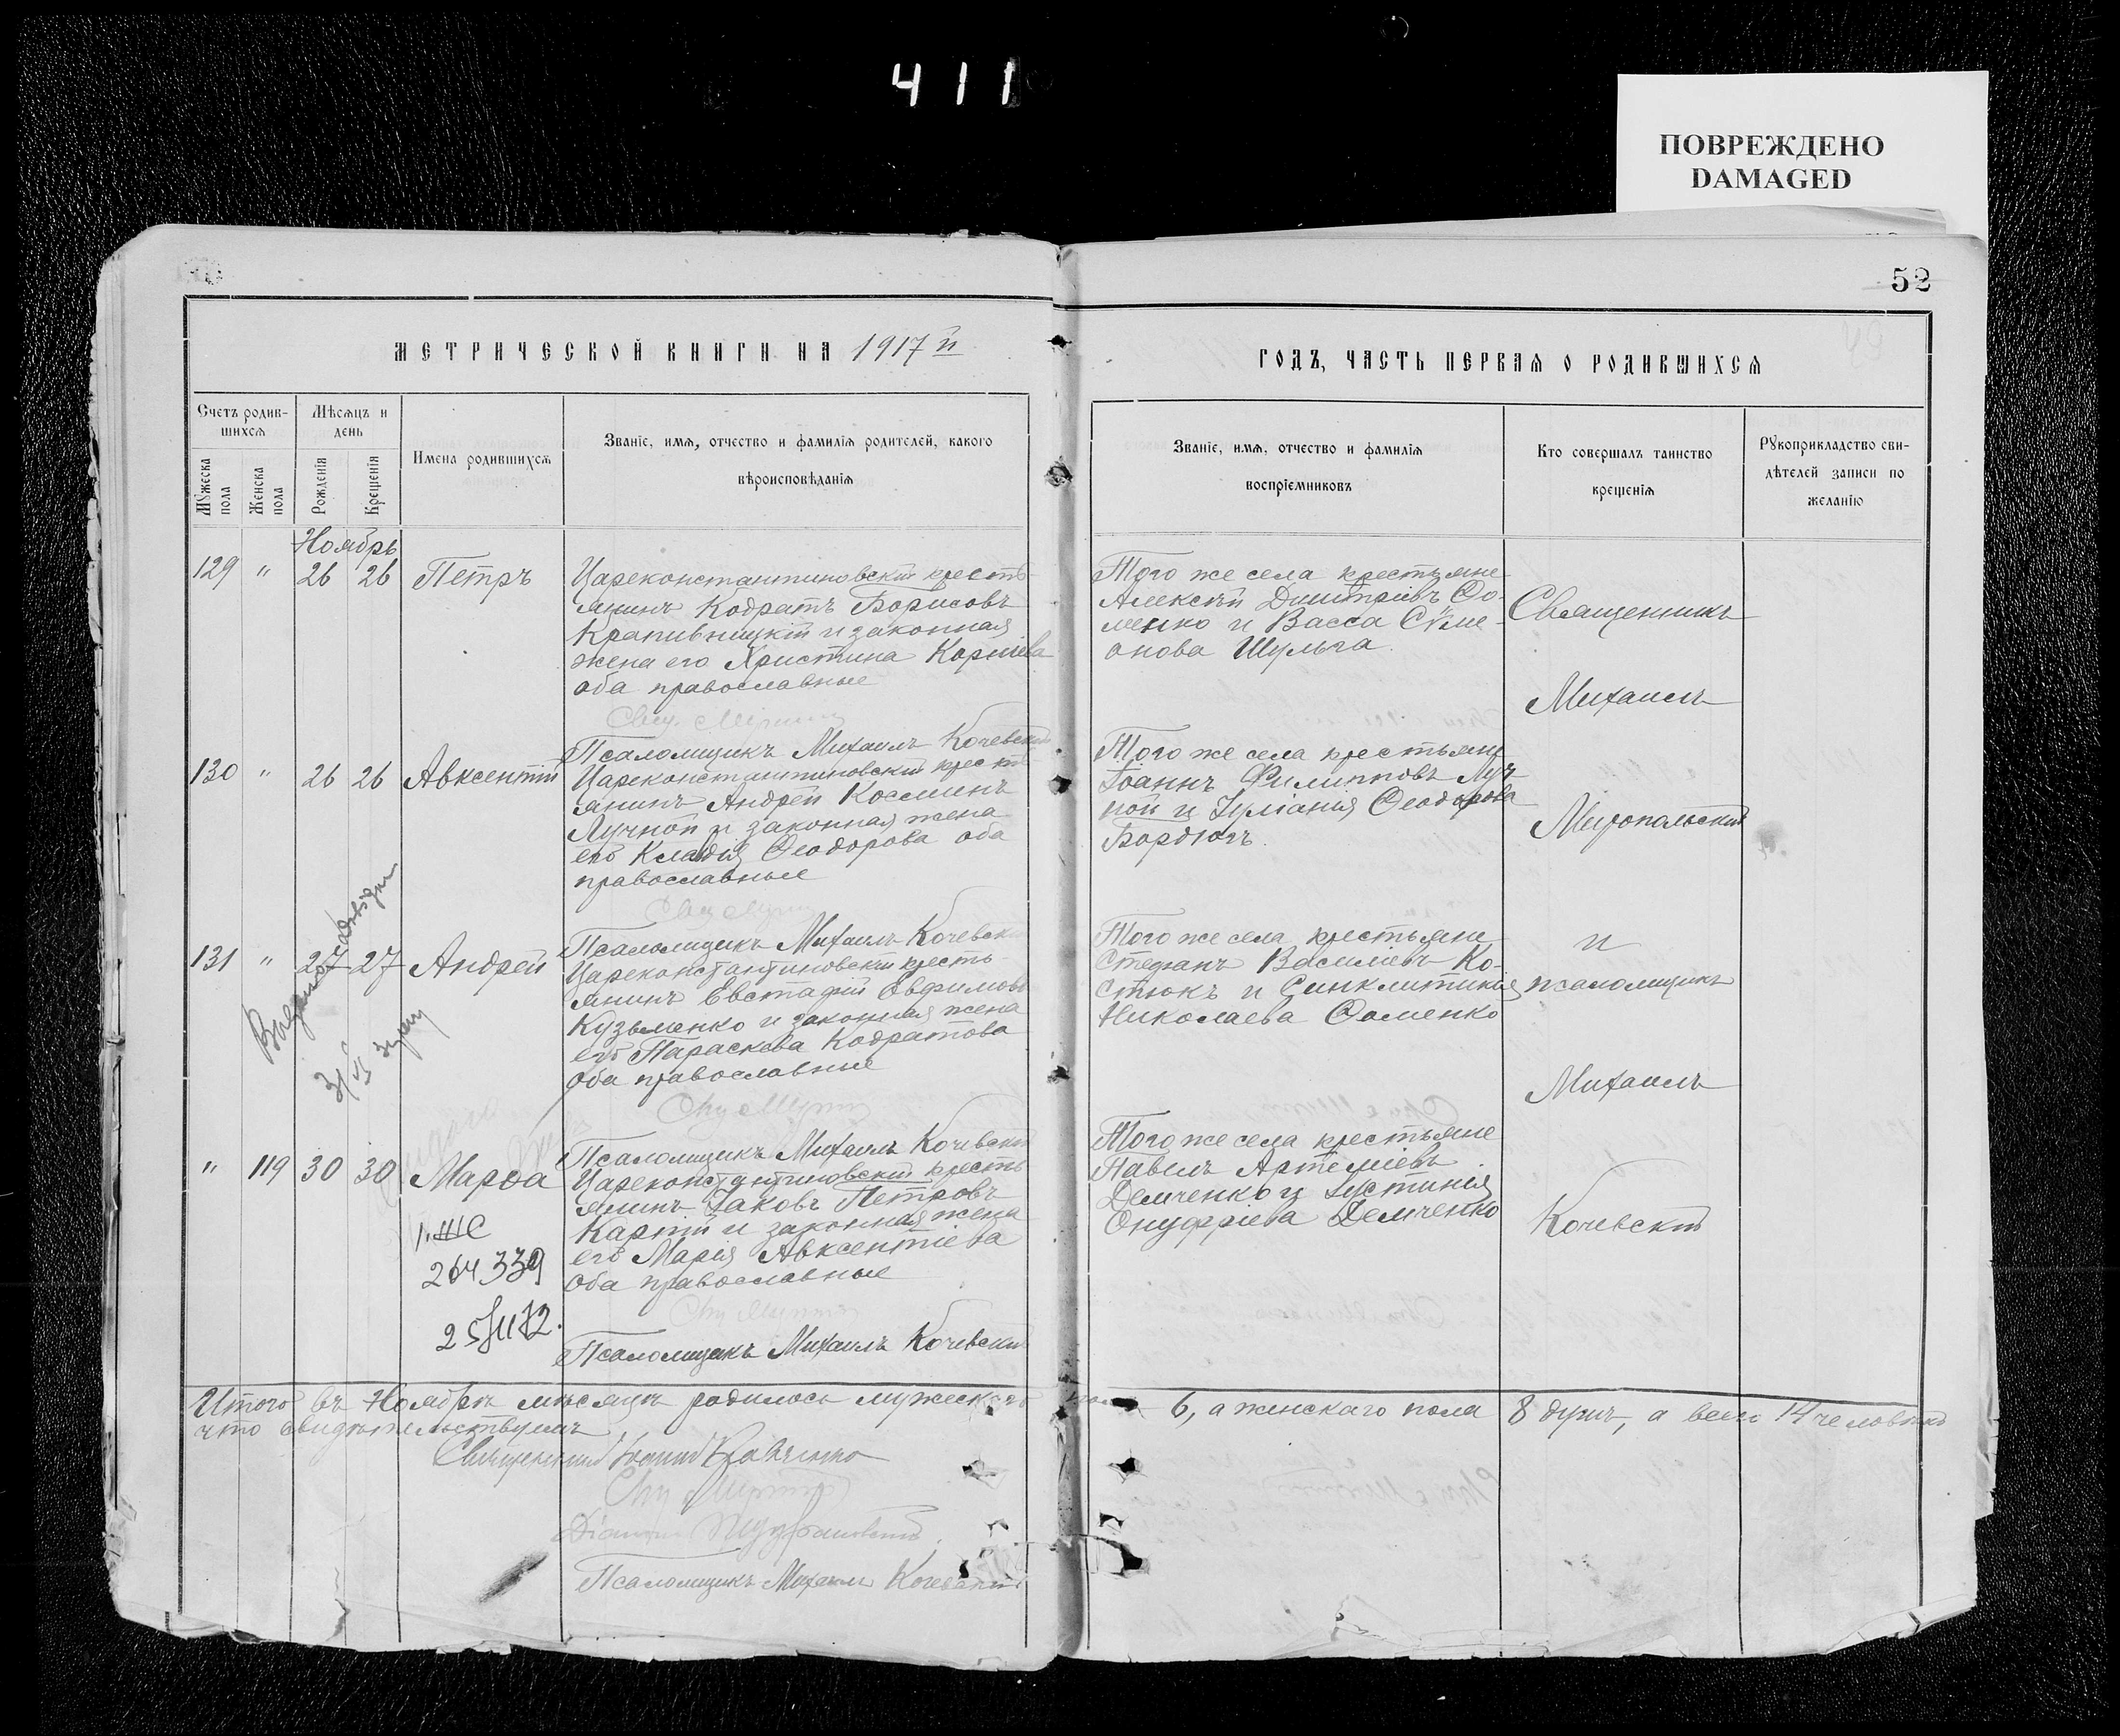 411
ПОВРЕЖДЕНО
DAMAGED
52
МЕТРИЧЕСКОЙ КНИГИ НА 1917 й
ГОДЪ, ЧАСТЬ ПЕРВАЯ О РОДИВШИХСЯ
Счетъ родив-
шихся
Мѣсяцъ и
день
Мужеска
пола
Женска
пола
Рожденія
Крещенія
Имена родившихся
Званіе, имя, отчество и фамилія родителей, какого
вѣроисповѣданія
Званіе, имя, отчество и фамилія
воспріемниковъ
Кто совершалъ таинство
крещенія
Рукоприкладство сви-
дѣтелей записи по
желанію
Ноябрь
129 " 26 26 Петръ
Цареконстантиновскій кресть-
янинъ Кодратъ Борисовъ
Крапивницкій и законная
жена его Христина Корнiева
оба православные
Псаломщикъ Михаилъ Кочевскій
Того же села крестьяне
Алексѣй Димитріевъ Ѳо-
менко и Васса Симе-
онова Шульга.
130 " 26 26 Авксентій
Цареконстантиновскій кресть
янинъ Андрей Косминъ
Лучной и законная жена
его Клавдія Ѳеодорова оба
православные
Псаломщикъ Михаилъ Кочевскій
Того же села крестьяне
Іоаннъ Филипповъ Луч-
ной и Іуліанія Ѳеодорова
Бордюгъ.
131 " 27 27 Андрей
Цареконстантиновскій кресть-
янинъ Евстафій Евфимовъ
Кузьменко и законная жена
его Параскева Кодратова
оба православные
Псаломщикъ Михаилъ Кочевскій
Того же села крестьяне
Стефанъ Василіевъ Ко-
стюкъ и Синклитикія
Николаева Ѳоменко
" 119 30 30 Марѳа
264339
Цареконстантиновскій кресть
янинъ Іаковъ Петровъ
Карпій и законная жена
его Марія Авксентіева
оба православные
Псаломщикъ Михаилъ Кочевскій
Того же села крестьяне
Павелъ Артеміевъ
Демченко и Іустинія
Онуфріева Демченко
Священникъ
Михаилъ
Миропольскій
и
псаломщикъ
Михаилъ
Кочевскій
Итого въ Ноябрѣ мѣсяцѣ родилось мужескаго пола 6, а женскаго пола 8 душъ, а всего 14 человѣкъ
что свидѣтельствуемъ
Священникъ Іоаннъ Кравченко
Псаломщикъ Михаилъ Кочевскій